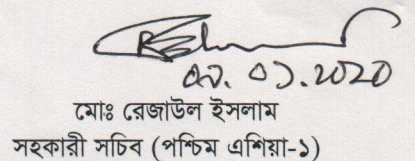 ০৯. ০১.২০২০
মোঃ রেজাউল ইসলাম
সহকারী সচিব (পশ্চিম এশিয়া-১)